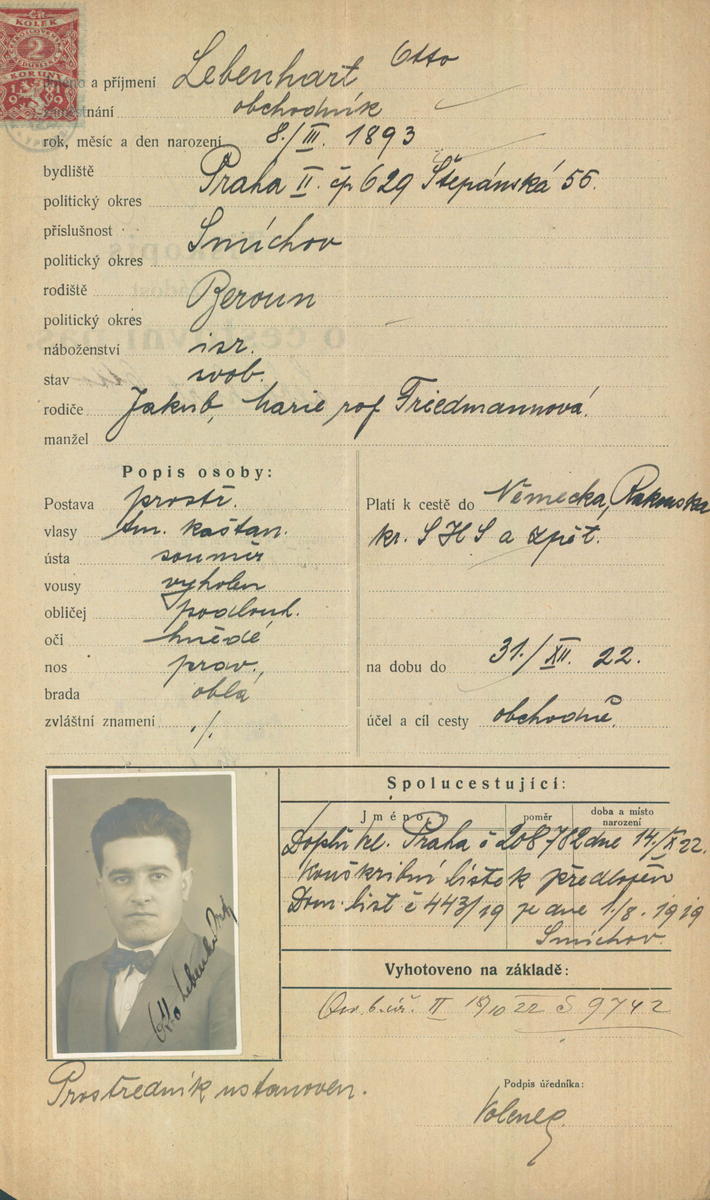 ČR
KOLEK
2
KORUNY
1919
jméno a příjmení Lebenhart Otto
zaměstnání obchodník
rok, měsíc a den narození 8./III. 1893
bydliště Praha II. čp 629 Štěpánská 56.
politický okres
příslušnost Smíchov
politický okres
rodiště Beroun
politický okres
náboženství isr.
stav svob.
rodiče Jakub, Marie roz Friedmannová
manžel
Popis osoby:
Postava prostř.
vlasy tm. kaštan.
ústa souměr
vousy vyholen
obličej podlouh.
oči hnědé
nos prav.
brada oblá
zvláštní znamení ./.
Platí k cestě do Německa, Rakouska
kr. SHS a zpět.
na dobu do 31./XII. 22.
účel a cíl cesty obchodně
Spolucestující:
Jméno poměr doba a místo narození
Praha č 208782 dne 14./X 22.
Konskribní lístek předložen
Dom. list č 443/19 ze dne 1./8. 1919
Smíchov
Vyhotoveno na základě:
II 18/10 22 č 9742
Otto Lebenhart
Prostředník ustanoven.
Podpis úředníka: